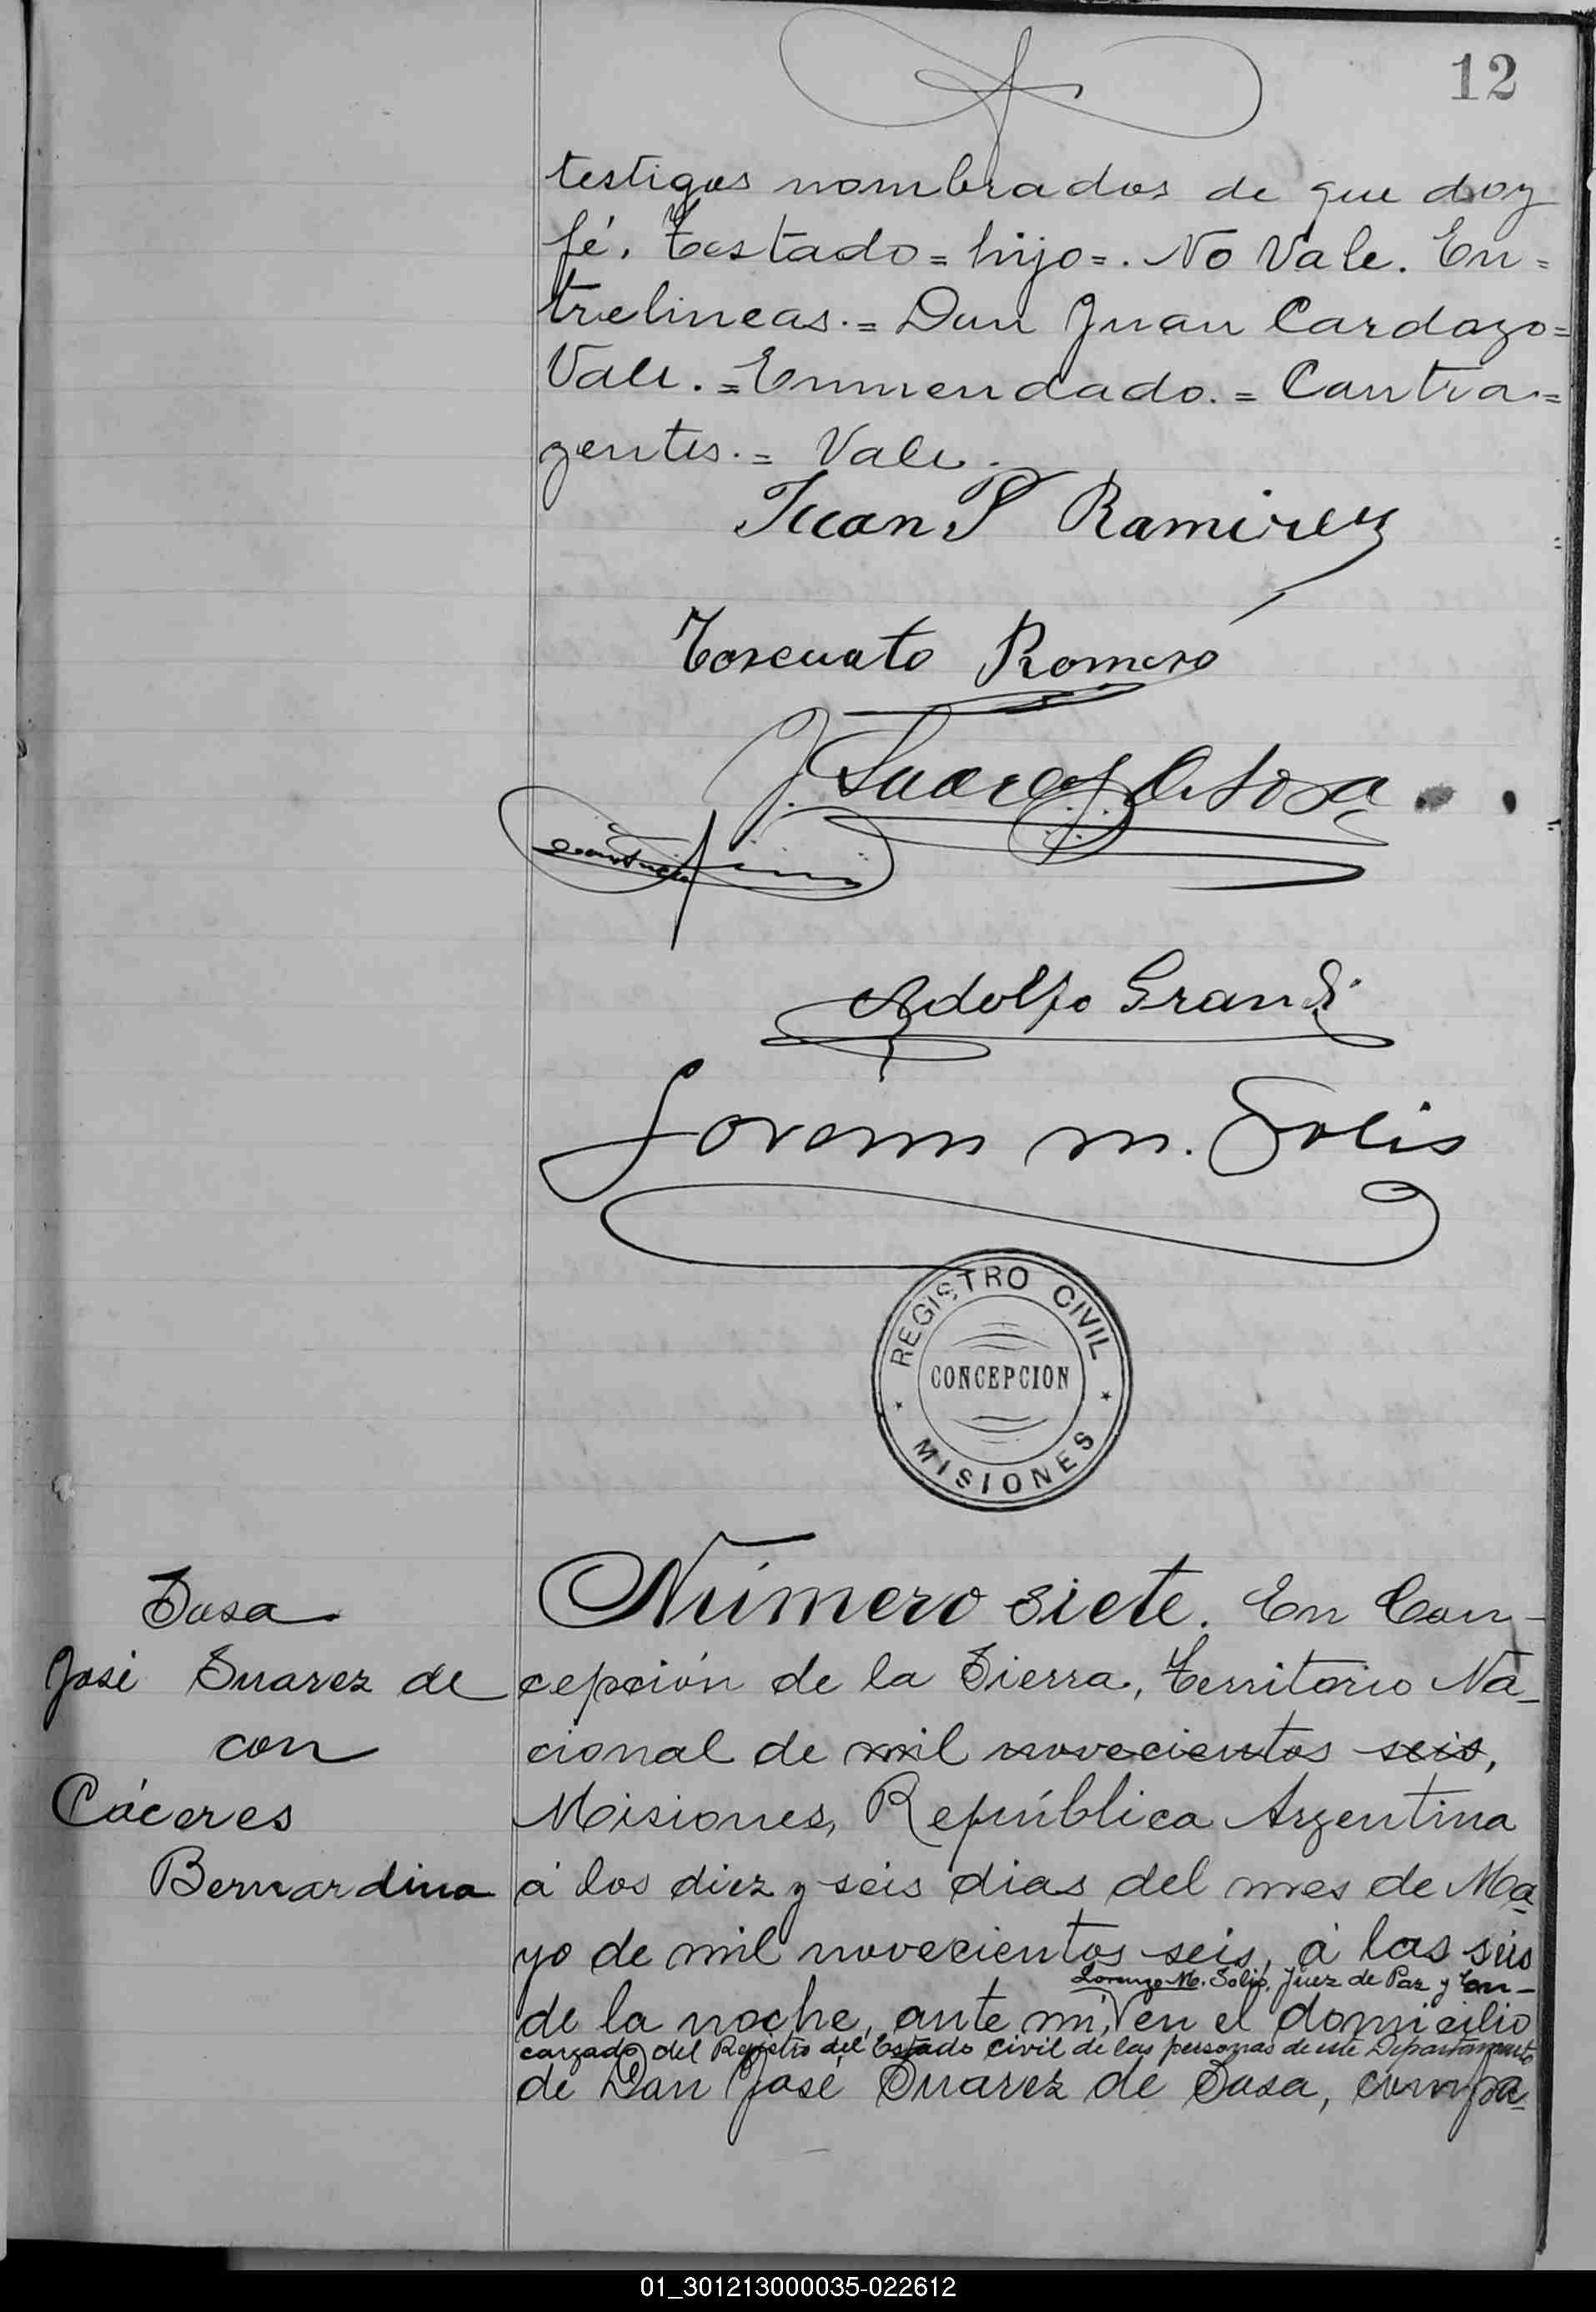 12
testigos nombrados de que doy
fé. Testado = hijo =. No Vale. En=
trelineas. = Don Juan Cardozo =
Vale. = Enmendado. = Contra=
yentes. = Vale.
Juan P Ramirez
Torcuato Romero
J. Suarez de Sosa
Adolfo Grandi
Lorenzo M. Solis
REGISTRO CIVIL
CONCEPCION
MISIONES
Sosa
José Suarez de
con
Cáceres
Bernardina
Número siete. En Con-
cepción de la Sierra, Territorio Na-
cional de mil novecientos seis,
Misiones, República Argentina
á los diez y seis dias del mes de Ma
yo de mil novecientos seis, á las seis
Lorenzo M. Solis, Juez de Paz y En-
de la noche, ante mi, en el domicilio
cargado del Registro del Estado Civil de las personas de este Departamento
de Don José Suarez de Sosa, compa-
01_301213000035-022612